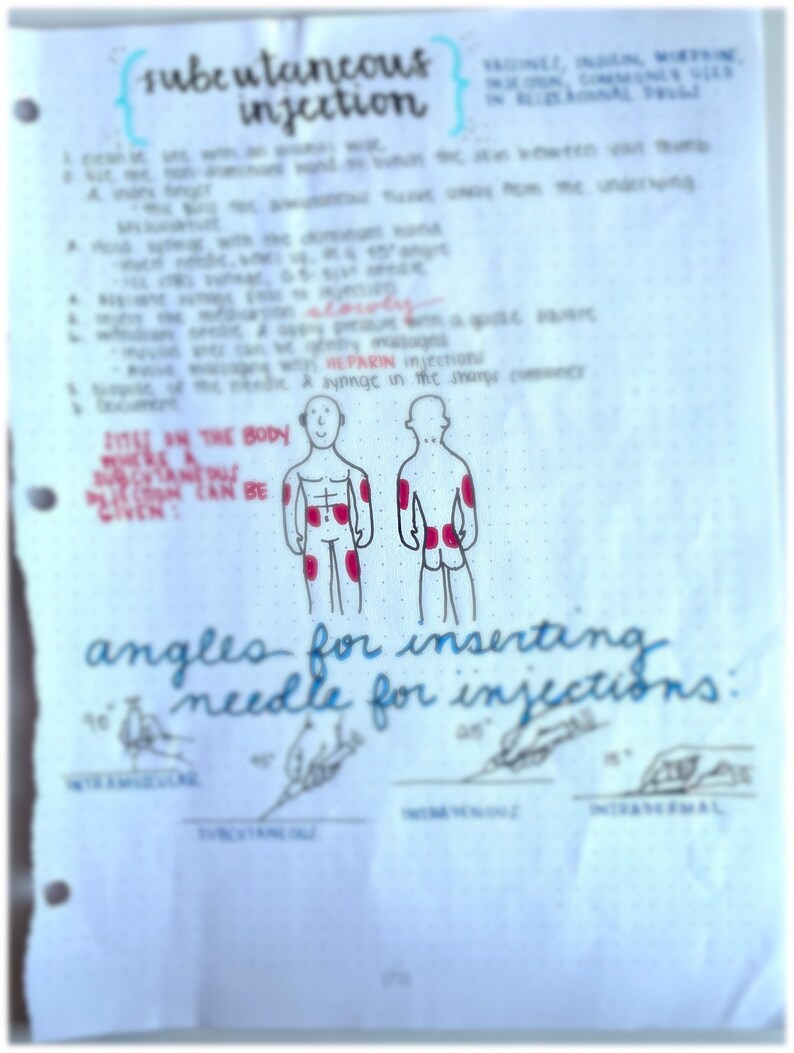 subcutaneous
injection
VACCINES, INSULIN, MORPHINE,
INJECTION, COMMONLY USED
IN RECREATIONAL DRUGS
1. cleanse site with an alcohol wipe
2. use the non-dominant hand to bunch the skin between your thumb
& index finger
the subcutaneous tissue away from the underlying
3. Hold syringe with the dominant hand
insert needle, bevel up, at a 45° angle
syringe, needle
4. prior to injection
5. inject the medication slowly
6. withdraw needle & apply pressure with a gauze square
can be gently massaged
• Avoid massaging with HEPARIN injections
7. Dispose of the needle & syringe in the sharps container
8. Document
SITES ON THE BODY
WHERE A
SUBCUTANEOUS
INJECTION CAN BE
GIVEN:
angles for inserting
needle for injections:
90°
45°
25°
15°
INTRAMUSCULAR
SUBCUTANEOUS
INTRAVENOUS
INTRADERMAL